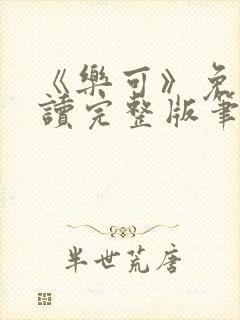 《樂可》免
讀完整版筆
半世荒唐